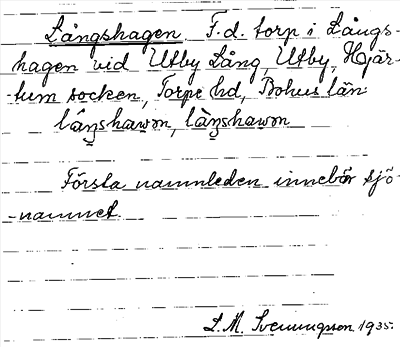 Långshagen. F.d. torp i Långs-
hagen vid Utby Lång, Utby, Hjär-
-tum socken, Torpe hd, Bohus län
Första namnleden innebär sjö-
-namnet.
L. M. Svenungsson 1935.